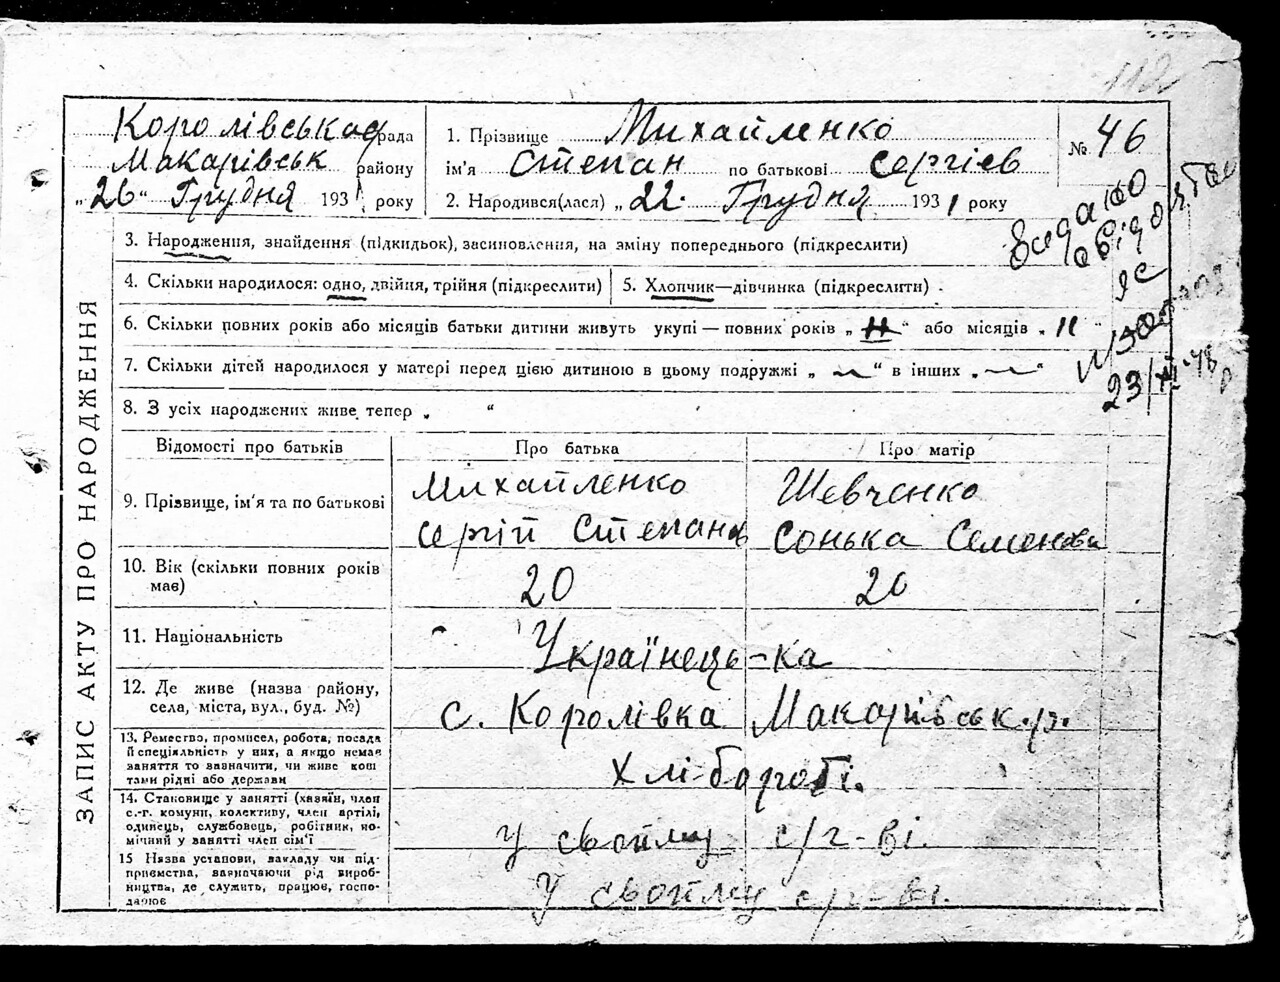 112
Королівська рада
Макарівськ району
„26“ Грудня 1931 року
1. Прізвище Михайленко
ім'я Степан по батькові Сергієв
2. Народився(лася) „22. Грудня 1931 року
№ 46
3. Народження, знайдення (підкидьок), засиновлення, на зміну попереднього (підкреслити)
4. Скільки народилося: одно, двійня, трійня (підкреслити)
5. Хлопчик—дівчинка (підкреслити)
6. Скільки повних років або місяців батьки дитини живуть укупі — повних років „ “ або місяців „ 11 “
7. Скільки дітей народилося у матері перед цією дитиною в цьому подружжі „ — “ в інших „ — “
8. З усіх народжених живе тепер „ “
Видано
свідоцтво
23/XII-48 р
ЗАПИС АКТУ ПРО НАРОДЖЕННЯ
Відомості про батьків
Про батька
Про матір
9. Прізвище, ім'я та по батькові
Михайленко
Сергій Степанов
Шевченко
Сонька Семенова
10. Вік (скільки повних років
має)
20
20
11. Національність
Українець-ка
12. Де живе (назва району,
села, міста, вул., буд. №)
с. Королівка Макарівськ. р.
13. Ремество, промисел, робота, посада
й спеціяльність у них, а якщо немає
заняття то зазначити, чи живе кошт
тами рідні або держави
Хлібороби.
14. Становище у занятті (хазяїн, член
с.-г. комуни, колективу, член артілі,
одинець, службовець, робітник, по-
мічний у занятті член сім'ї
у свойму с/г-ві.
15 Назва установи, закладу чи під-
приємства, зазначаючи рід вироб-
ництва, де служить, працює, госпо-
дарює
У свойму с/г-ві.